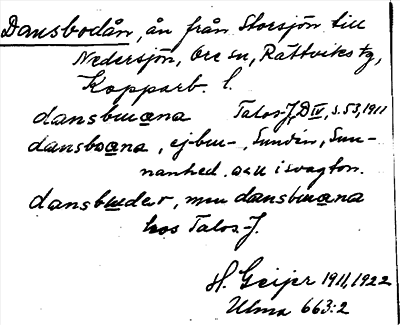 Dansbodån, ån från Storsjön till
Nedersjön, Ore sn, Rättviks tg,
Kopparb. l.
dansbuɯana Talos-J, D IV, s. 53, 1911
dansboana, ej -bu-, Sundén, Sun-
nanhed. o. u i svagton.
dansbuder, mu dansbuɯana
hos Talos-J.
H. Geijer 1911, 1922
Ulma 663:2